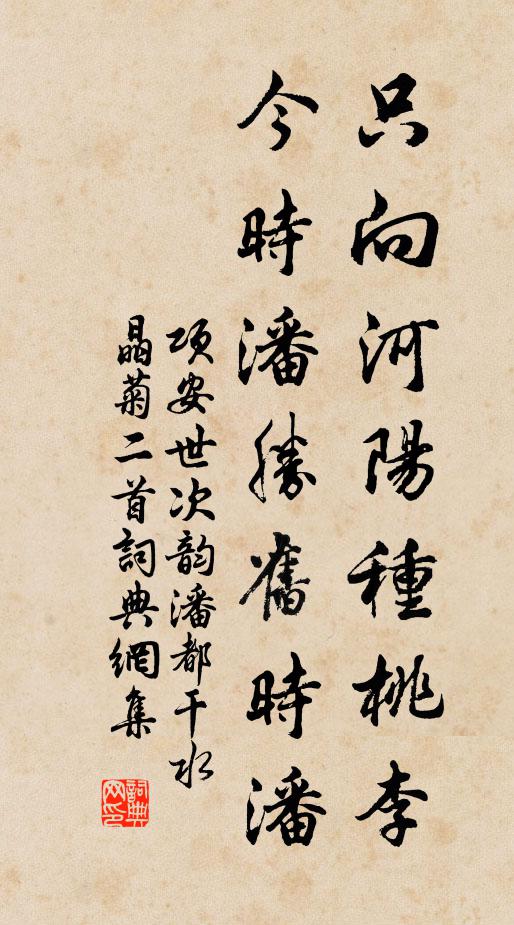 只向河陽種桃李
今時潘勝舊時潘
項安世次韵潘都干水
晶菊二首詞典網集
詞典
网印